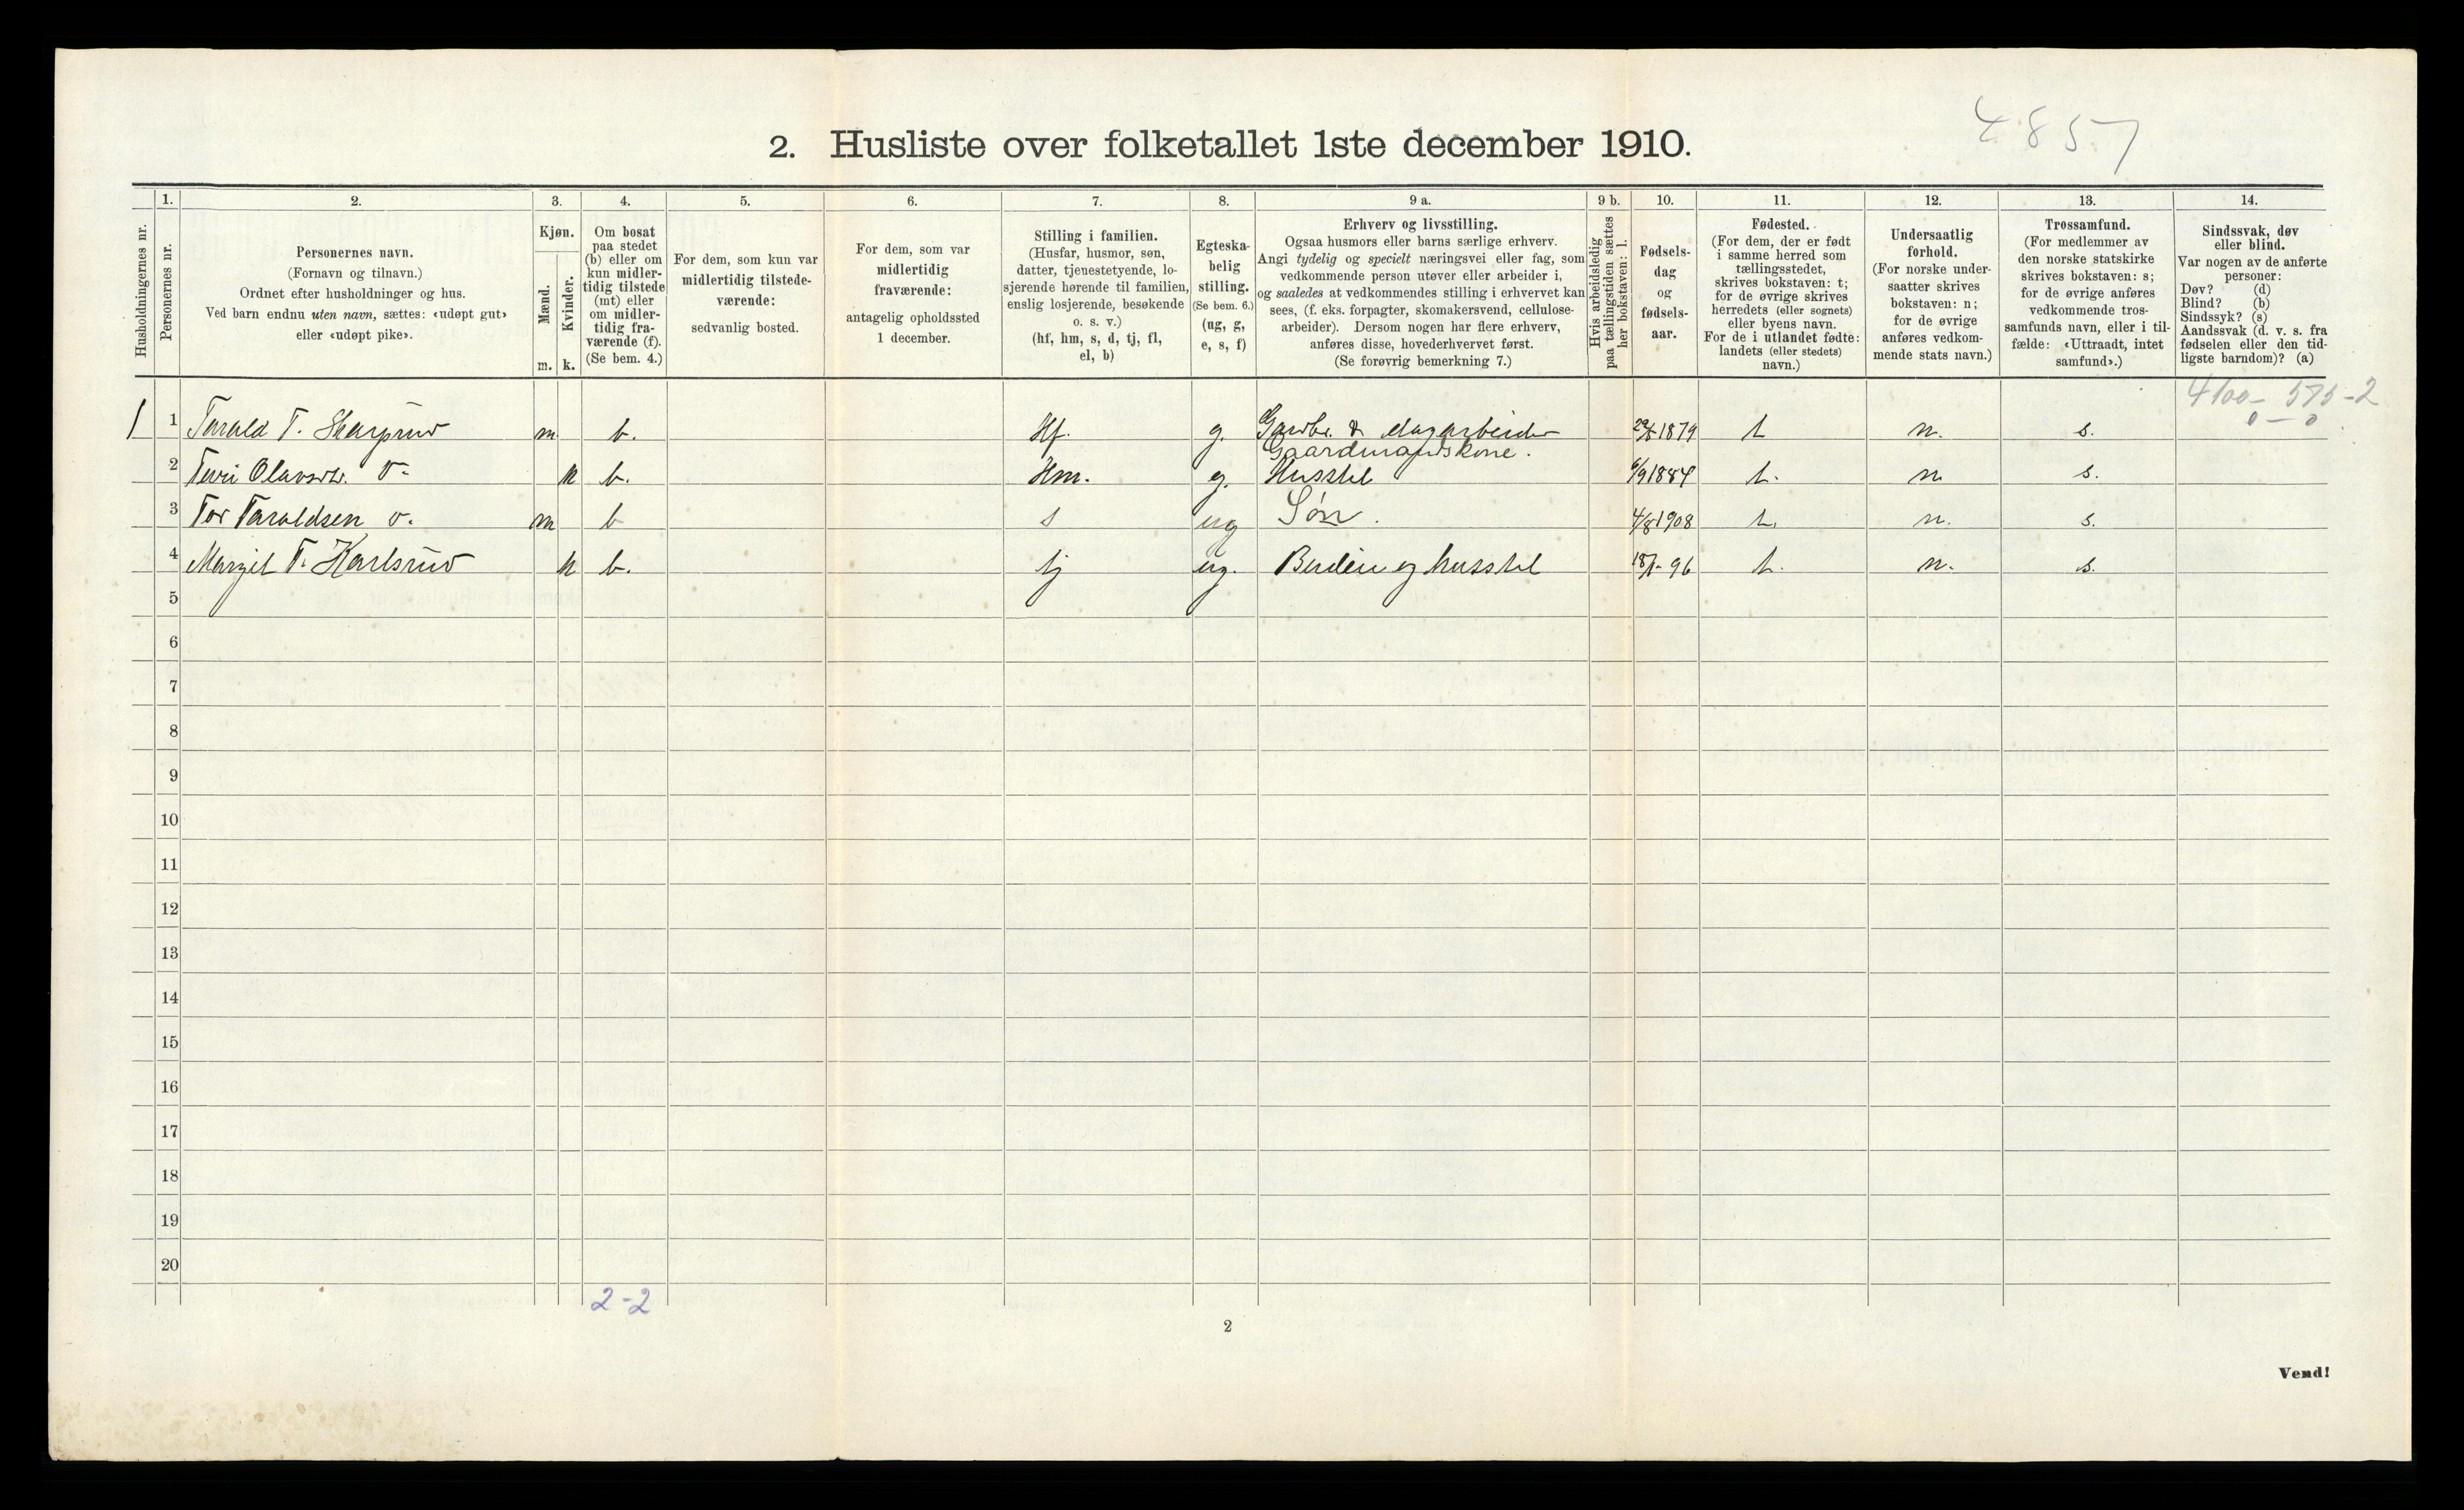 4857
2. Husliste over folketallet 1ste december 1910.
Husholdningernes nr.
1.
Personernes nr.
2.
Personernes navn.
(Fornavn og tilnavn.)
Ordnet efter husholdninger og hus.
Ved barn endnu uten navn, sættes: «udøpt gut»
eller «udøpt pike».
3.
Kjøn.
Mænd.
Kvinder.
m. k.
4.
Om bosat
paa stedet
(b) eller om
kun midler-
tidig tilstede
(mt) eller
om midler-
tidig fra-
værende (f).
(Se bem. 4.)
5.
For dem, som kun var
midlertidig tilstede-
værende:
sedvanlig bosted.
6.
For dem, som var
midlertidig
fraværende:
antagelig opholdssted
1 december.
7.
Stilling i familien.
(Husfar, husmor, søn,
datter, tjenestetyende, lo-
sjerende hørende til familien,
enslig losjerende, besøkende
o. s. v.)
(hf, hm, s, d, tj, fl,
el, b)
8.
Egteska-
belig
stilling.
(Se bem. 6.)
(ug, g,
e, s, f)
9 a.
Erhverv og livsstilling.
Ogsaa husmors eller barns særlige erhverv.
Angi tydelig og specielt næringsvei eller fag, som
vedkommende person utøver eller arbeider i,
og saaledes at vedkommendes stilling i erhvervet kan
sees, (f. eks. forpagter, skomakersvend, cellulose-
arbeider). Dersom nogen har flere erhverv,
anføres disse, hovederhvervet først.
(Se forøvrig bemerkning 7.)
9 b.
Hvis arbeidsledig
paa tællingstiden sættes
her bokstaven: l.
10.
Fødsels-
dag
og
fødsels-
aar.
11.
Fødested.
(For dem, der er født
i samme herred som
tællingsstedet,
skrives bokstaven: t;
for de øvrige skrives
herredets (eller sognets)
eller byens navn.
For de i utlandet fødte:
landets (eller stedets)
navn.)
12.
Undersaatlig
forhold.
(For norske under-
saatter skrives
bokstaven: n;
for de øvrige
anføres vedkom-
mende stats navn.)
13.
Trossamfund.
(For medlemmer av
den norske statskirke
skrives bokstaven: s;
for de øvrige anføres
vedkommende tros-
samfunds navn, eller i til-
fælde: «Uttraadt, intet
samfund».)
14.
Sindssvak, døv
eller blind.
Var nogen av de anførte
personer:
Døv? (d)
Blind? (b)
Sindssyk? (s)
Aandssvak (d. v. s. fra
fødselen eller den tid-
ligste barndom)? (a)
4100 - 575 - 2
0 - 0
1 1 Tarald T. m. b. Hf. g. Gaardbr. & dagarbeider 1879 t n. s.
Gaardmandskone.
2 Turi k b. Hm. g. Husstel 6/9 1884 t. n s.
3 Tor Taraldsen m b s ug Søn. 4/8 1908 t. n. s.
4 Margit T. Karlsrud k b. tj ug. Budeie og husstel 96 t. n. s.
5
6
7
8
9
10
11
12
13
14
15
16
17
18
19
20
2-2
2
Vend!